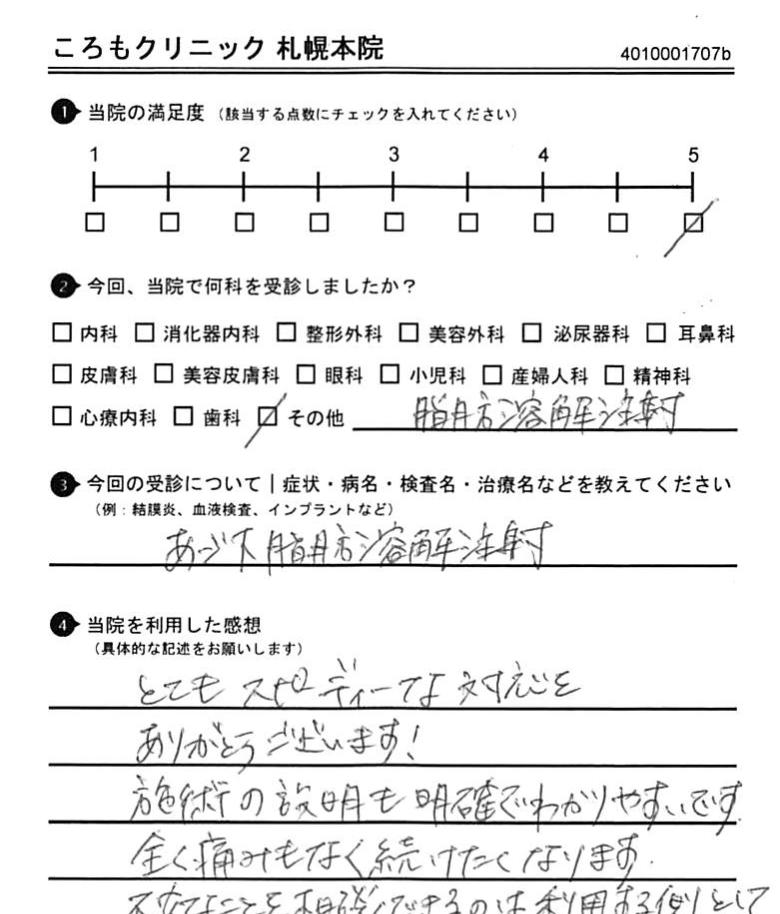 ころもクリニック 札幌本院 4010001707b
❶ 当院の満足度 （該当する点数にチェックを入れてください）
1 2 3 4 5
❷ 今回、当院で何科を受診しましたか？
□ 内科 □ 消化器内科 □ 整形外科 □ 美容外科 □ 泌尿器科 □ 耳鼻科
□ 皮膚科 □ 美容皮膚科 □ 眼科 □ 小児科 □ 産婦人科 □ 精神科
□ 心療内科 □ 歯科 ☑ その他 脂肪溶解注射
❸ 今回の受診について｜症状・病名・検査名・治療名などを教えてください
（例：結膜炎、血液検査、インプラントなど）
あご下脂肪溶解注射
❹ 当院を利用した感想
（具体的な記述をお願いします）
とてもスピーディーな対応を
ありがとうございます！
施術の説明も明確でわかりやすいです
全く痛みもなく続けたくなります.
不安なことを相談できるのは利用する側として